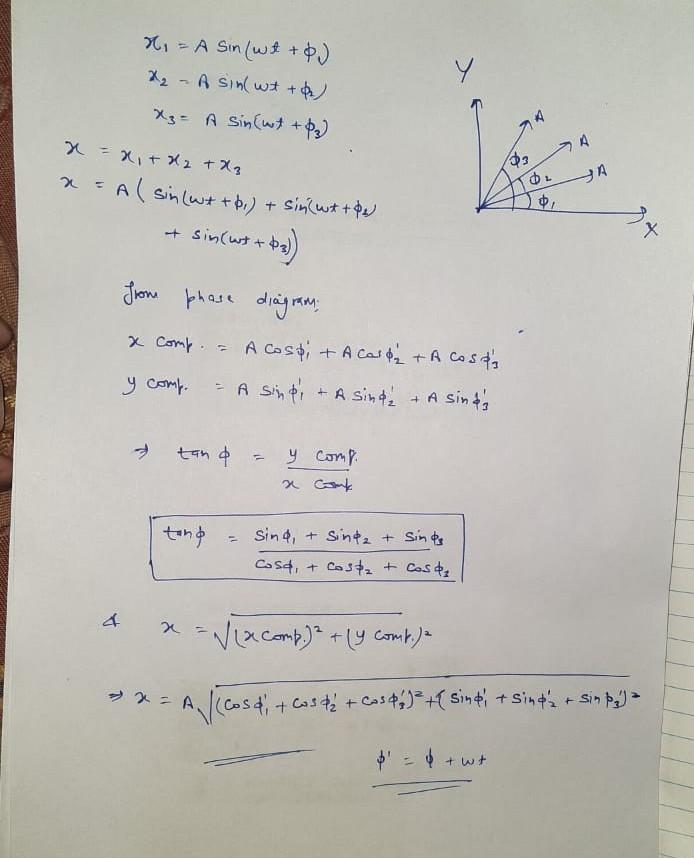 x₁ = A Sin(wt + ϕ₁)
x₂ = A sin(wt + ϕ₂)
x₃ = A Sin(wt + ϕ₃)
x = x₁ + x₂ + x₃
x = A ( sin(wt + ϕ₁) + sin(wt + ϕ₂)
+ sin(wt + ϕ₃))
Y
A
A
A
ϕ₃
ϕ₂
ϕ₁
X
from phase diagram;
x comp. = A cosϕ₁' + A cosϕ₂' + A cosϕ₃'
y comp. = A sinϕ₁' + A sinϕ₂' + A sinϕ₃'
⇒ tan ϕ = y comp. / x comp.
tanϕ = sinϕ₁ + sinϕ₂ + sinϕ₃ / cosϕ₁ + cosϕ₂ + cosϕ₃
& x = √(x comp.)² + (y comp.)²
⇒ x = A√(cosϕ₁' + cosϕ₂' + cosϕ₃')² + (sinϕ₁' + sinϕ₂' + sinϕ₃')²
ϕ' = ϕ + wt